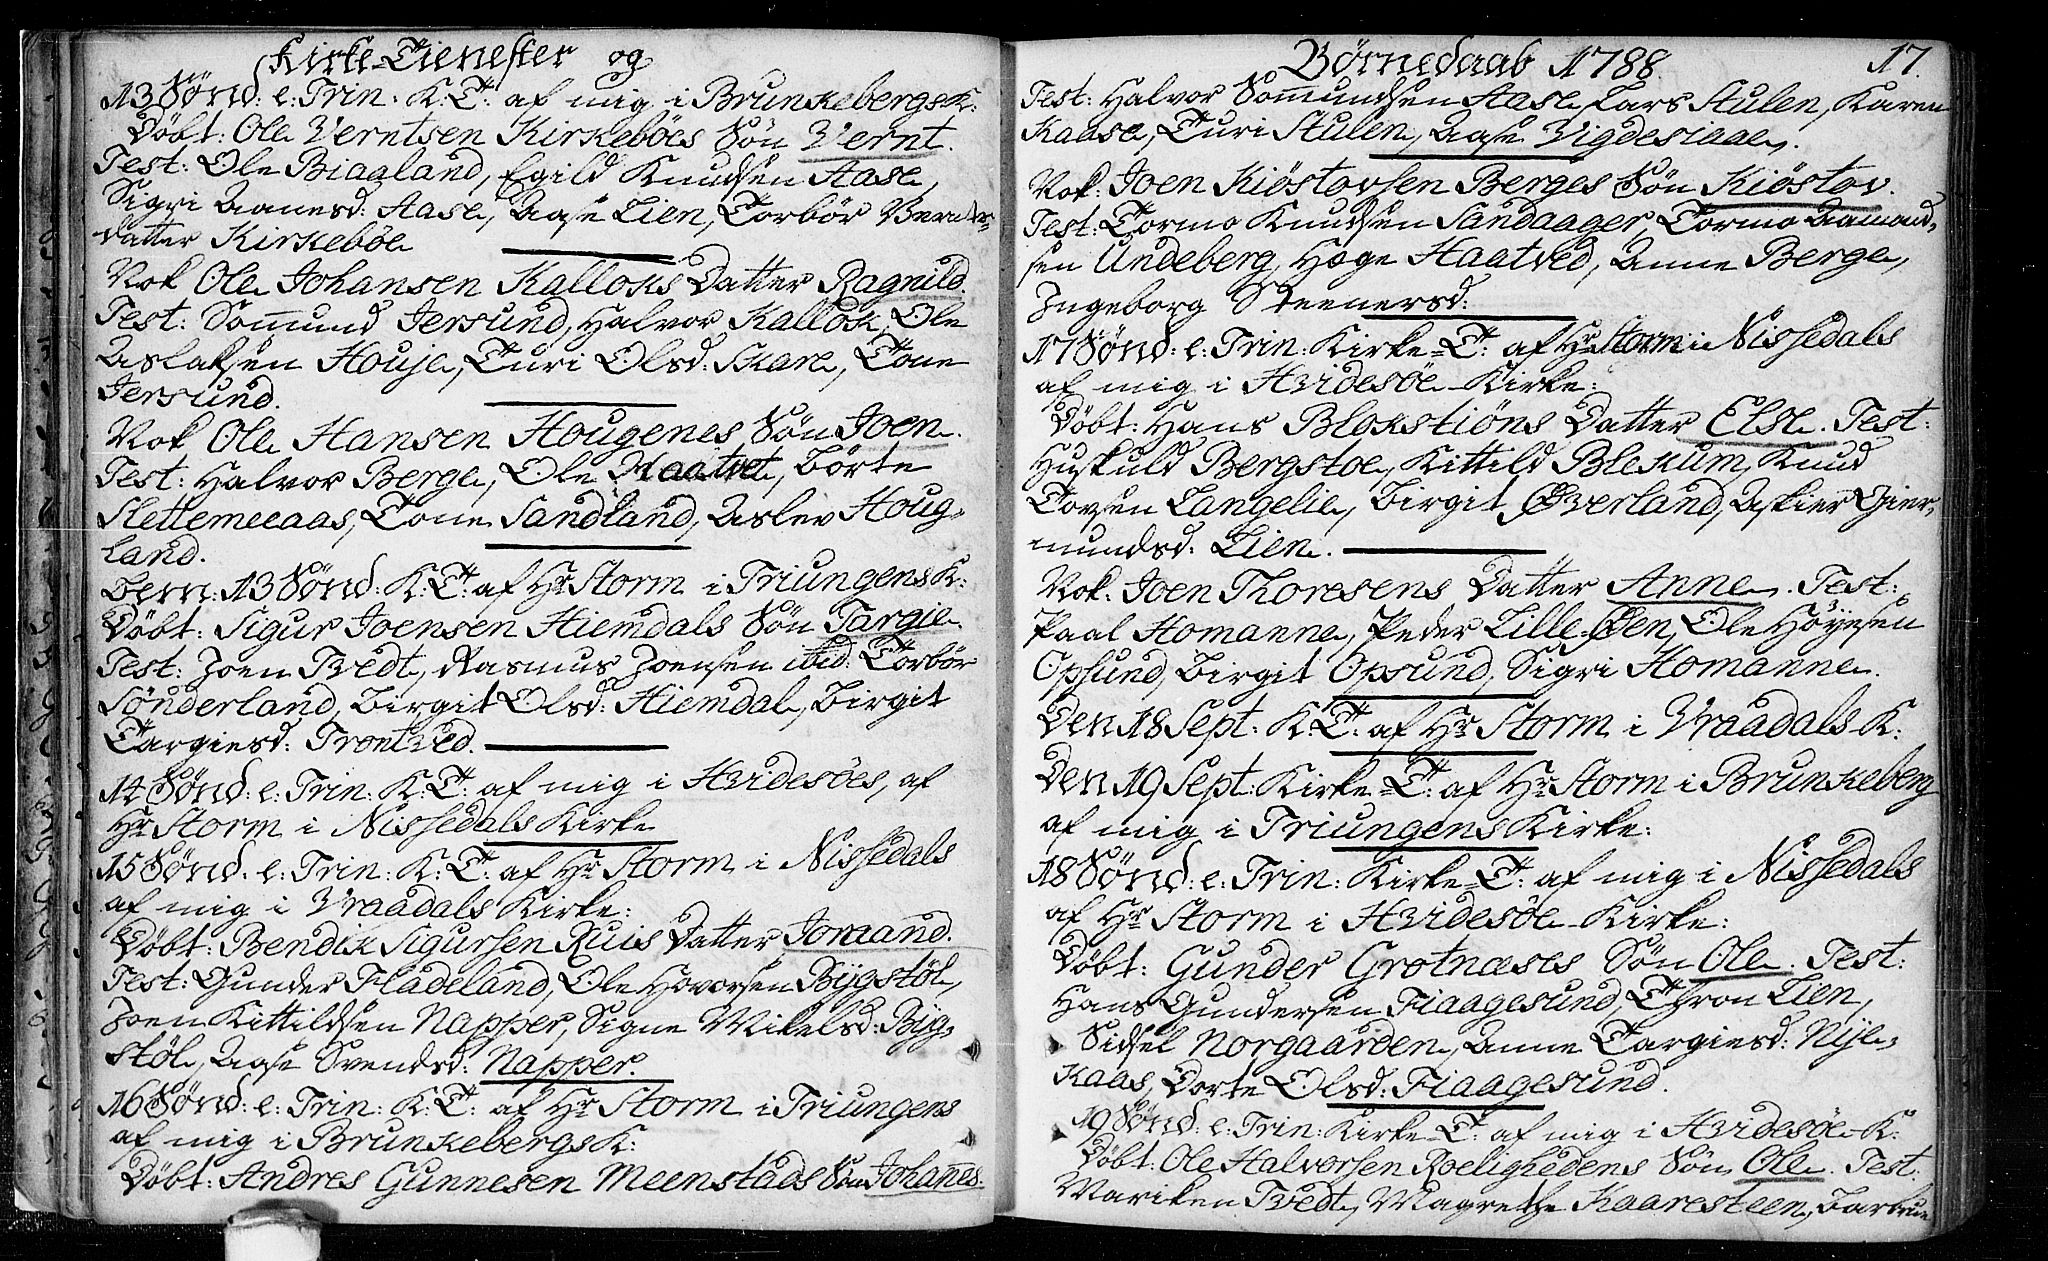 Kirke-Tienester og
13 Sønd: e: Trin: K: T: af mig i Brunkebergs K:
Døbt: Ole Verntsen Kirkeböes Søn Vernt.
Test: Ole Biaaland, Egild Knudsen Aase,
Sigri Aanesd: Aase, Aase Lien, Torbör Bernts-
datter Kirkeböe
Nok Ole Johansen Kalloks Datter Ragnild.
Test: Sommund Jersund, Halvor Kallok, Ole
Aslaksen Houje, Turi Olsd: Skare, Tone
Jersund.
Nok Ole Hansen Hougenes Søn Joen.
Test: Halvor Berge, Ole Haatvet, Börte
Slettemeeaas, Tone Sandland, Aslev Houg-
land.
Dem: 13 Sønd: K: T: af Hr Storm i Triungens K:
Døbt: Sigur Joensen Hiemdals Søn Targie
Test: Joen Tvedt, Rasmus Joensen ibid: Torbör
Sönderland, Birgit Olsd: Hiemdal, Birgit
Targiesd: Trontved.
14 Sønd: e: Trin: K: T: af mig i Hvidesöes, af
Hr Storm i Nissedals Kirke
15 Sønd: e: Trin: K: T: af Hr Storm i Nissedals
af mig i Vraadals Kirke:
Døbt: Bendik Sigursen Ruis Datter Jorand.
Test: Gunder Fladeland, Ole Hovorsen Bygstöl,
Joen Kittildsen Napper, Signe Mikelsd: Byg-
stöl, Aase Svendsd: Napper.
16 Sønd: e: Trin: K: T: af Hr Storm i Triungens
af mig i Brunkebergs K:
Døbt: Andres Gunnesen Meenstads Søn Johanes.
Børnedaab 1788 17.
Test: Halvor Sommundsen Aase, Lars Stulen, Karen
Kaase, Turi Stulen, Aase Vigdesiaae.
Nok: Joen Kiöstovsen Berges Søn Kiöstov.
Test: Tormo Knudsen Sandaager, Tormo Aamund-
sen Undeberg, Hoge Haatved, Anne Berge,
Ingeborg Steenersd:
17 Sønd: e: Trin: Kirke-T: af Hr Storm i Nissedals
af mig i Hvidesöe Kirke:
Døbt: Hans Blokstiöns Datter Else. Test:
Huskuld Bergstoe, Kittild Blekum, Knud
Torsen Langelie, Birgit Øverland, Askier Gier-
mundsd: Lien.
Nok: Joen Thoresens Datter Anne. Test:
Paal Homanne, Peder Lille-Øen, Ole Höyesen
Opsund, Birgit Opsund, Sigri Homanne.
Den 18 Sept: K: T: af Hr Storm i Vraadals K:
Den 19 Sept: Kirke-T: af Hr Storm i Brunkeberg
af mig i Triungens Kirke:
18 Sønd: e: Trin: Kirke-T: af mig i Nissedals
af Hr Storm i Hvidesöe Kirke:
Døbt: Gunder Grotnæses Søn Ole. Test:
Hans Gundersen Fiaagesund, Thron Lien,
Sidsel Norgaarden, Anne Targiesd: Nyle-
kaas, Dorte Olsd: Fiaagesund.
19 Sønd: e: Trin: Kirke-T: af mig i Hvidesöe K:
Døbt: Ole Halvorsen Roelighedens Søn Ole. Test:
Mariken Tvedt, Magrethe Kaaresteen, Barbrue